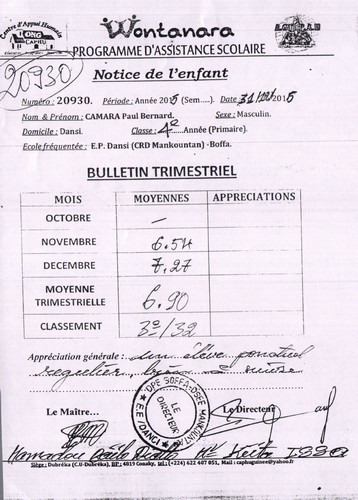 Centre d'Appui Humain
LONG
CAPHU
Wontanara
PROGRAMME D'ASSISTANCE SCOLAIRE
20930
Notice de l'enfant
Numéro : 20930. Période : Année 2015 (Sem.....). Date 2015
Nom & Prénom : CAMARA Paul Bernard. Sexe : Masculin.
Domicile : Dansi. Classe : 4e.....Année (Primaire).
Ecole fréquentée : E.P. Dansi (CRD Mankountan) -Boffa.
BULLETIN TRIMESTRIEL
MOIS MOYENNES APPRECIATIONS
OCTOBRE —
NOVEMBRE 6.54
DECEMBRE 7.27
MOYENNE TRIMESTRIELLE 6.90
CLASSEMENT 3e/32
Appréciation générale : un élève ponctuel
regulier,
Le Maître... Le Directeur
DPE BOFFA-DSEE MANKOUNTAN
LE DIRECTEUR
EP/DANSI
Mamadou
Siège : Dubréka (C.U-Dubréka), BP : 4819 Conakry, Tel : (+224) 622 407 051, Mail : caphuguinee@yahoo.fr